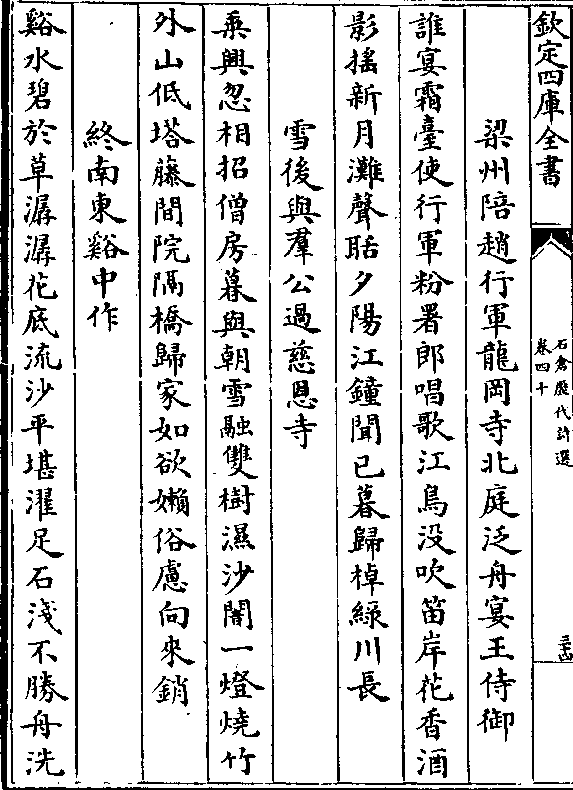 欽定四庫全書
石倉歷代詩選
卷四十
三十四
梁州陪趙行軍龍岡寺北庭泛舟宴王侍御
誰宴霜臺使行軍粉署郎唱歌江鳥没吹笛岸花香酒
影搖新月灘聲聒夕陽江鐘聞已暮歸棹綠川長
雪後與羣公過慈恩寺
乘興忽相招僧房暮與朝雪融雙樹濕沙闇一燈燒竹
外山低塔藤間院隔橋歸家如欲嬾俗慮向來銷
終南東谿中作
谿水碧於草潺潺花底流沙平堪濯足石淺不勝舟洗